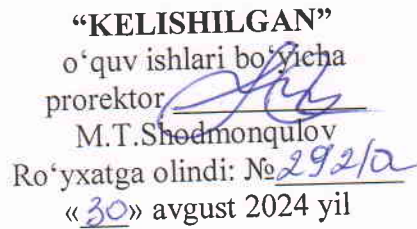 “KELISHILGAN”
o‘quv ishlari bo‘yicha
prorektor
M.T.Shodmonqulov
Ro‘yxatga olindi: №292/a
«30» avgust 2024 yil